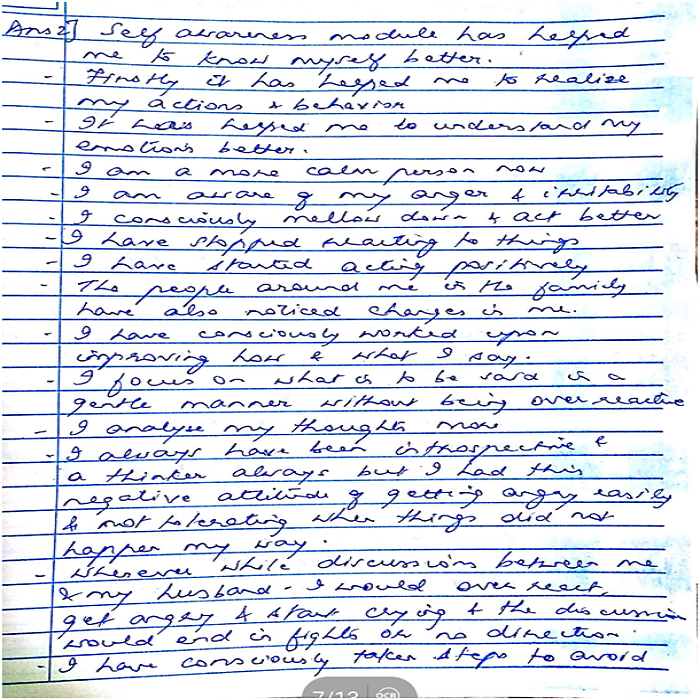 Ans 2] Self awareness module has helped
me to know myself better.
- Firstly it has helped me to realize
my actions & behavior
- It has helped me to understand my
emotions better.
- I am a more calm person now
- I am aware of my anger & irritability
- I consciously mellow down & act better
- I have stopped reacting to things
- I have started acting positively
- The people around me in the family
have also noticed changes in me.
- I have consciously worked upon
improving how & what I say.
- I focus on what is to be said in a
gentle manner without being over reactive
- I analyse my thoughts more
- I always have been introspective &
a thinker always but I had this
negative attitude of getting angry easily
& not tolerating when things did not
happen my way.
- Whenever while discussions between me
& my husband - I would over react,
get angry & start crying & the discussion
would end in fights or no direction.
- I have consciously taken steps to avoid
7/13 OCR